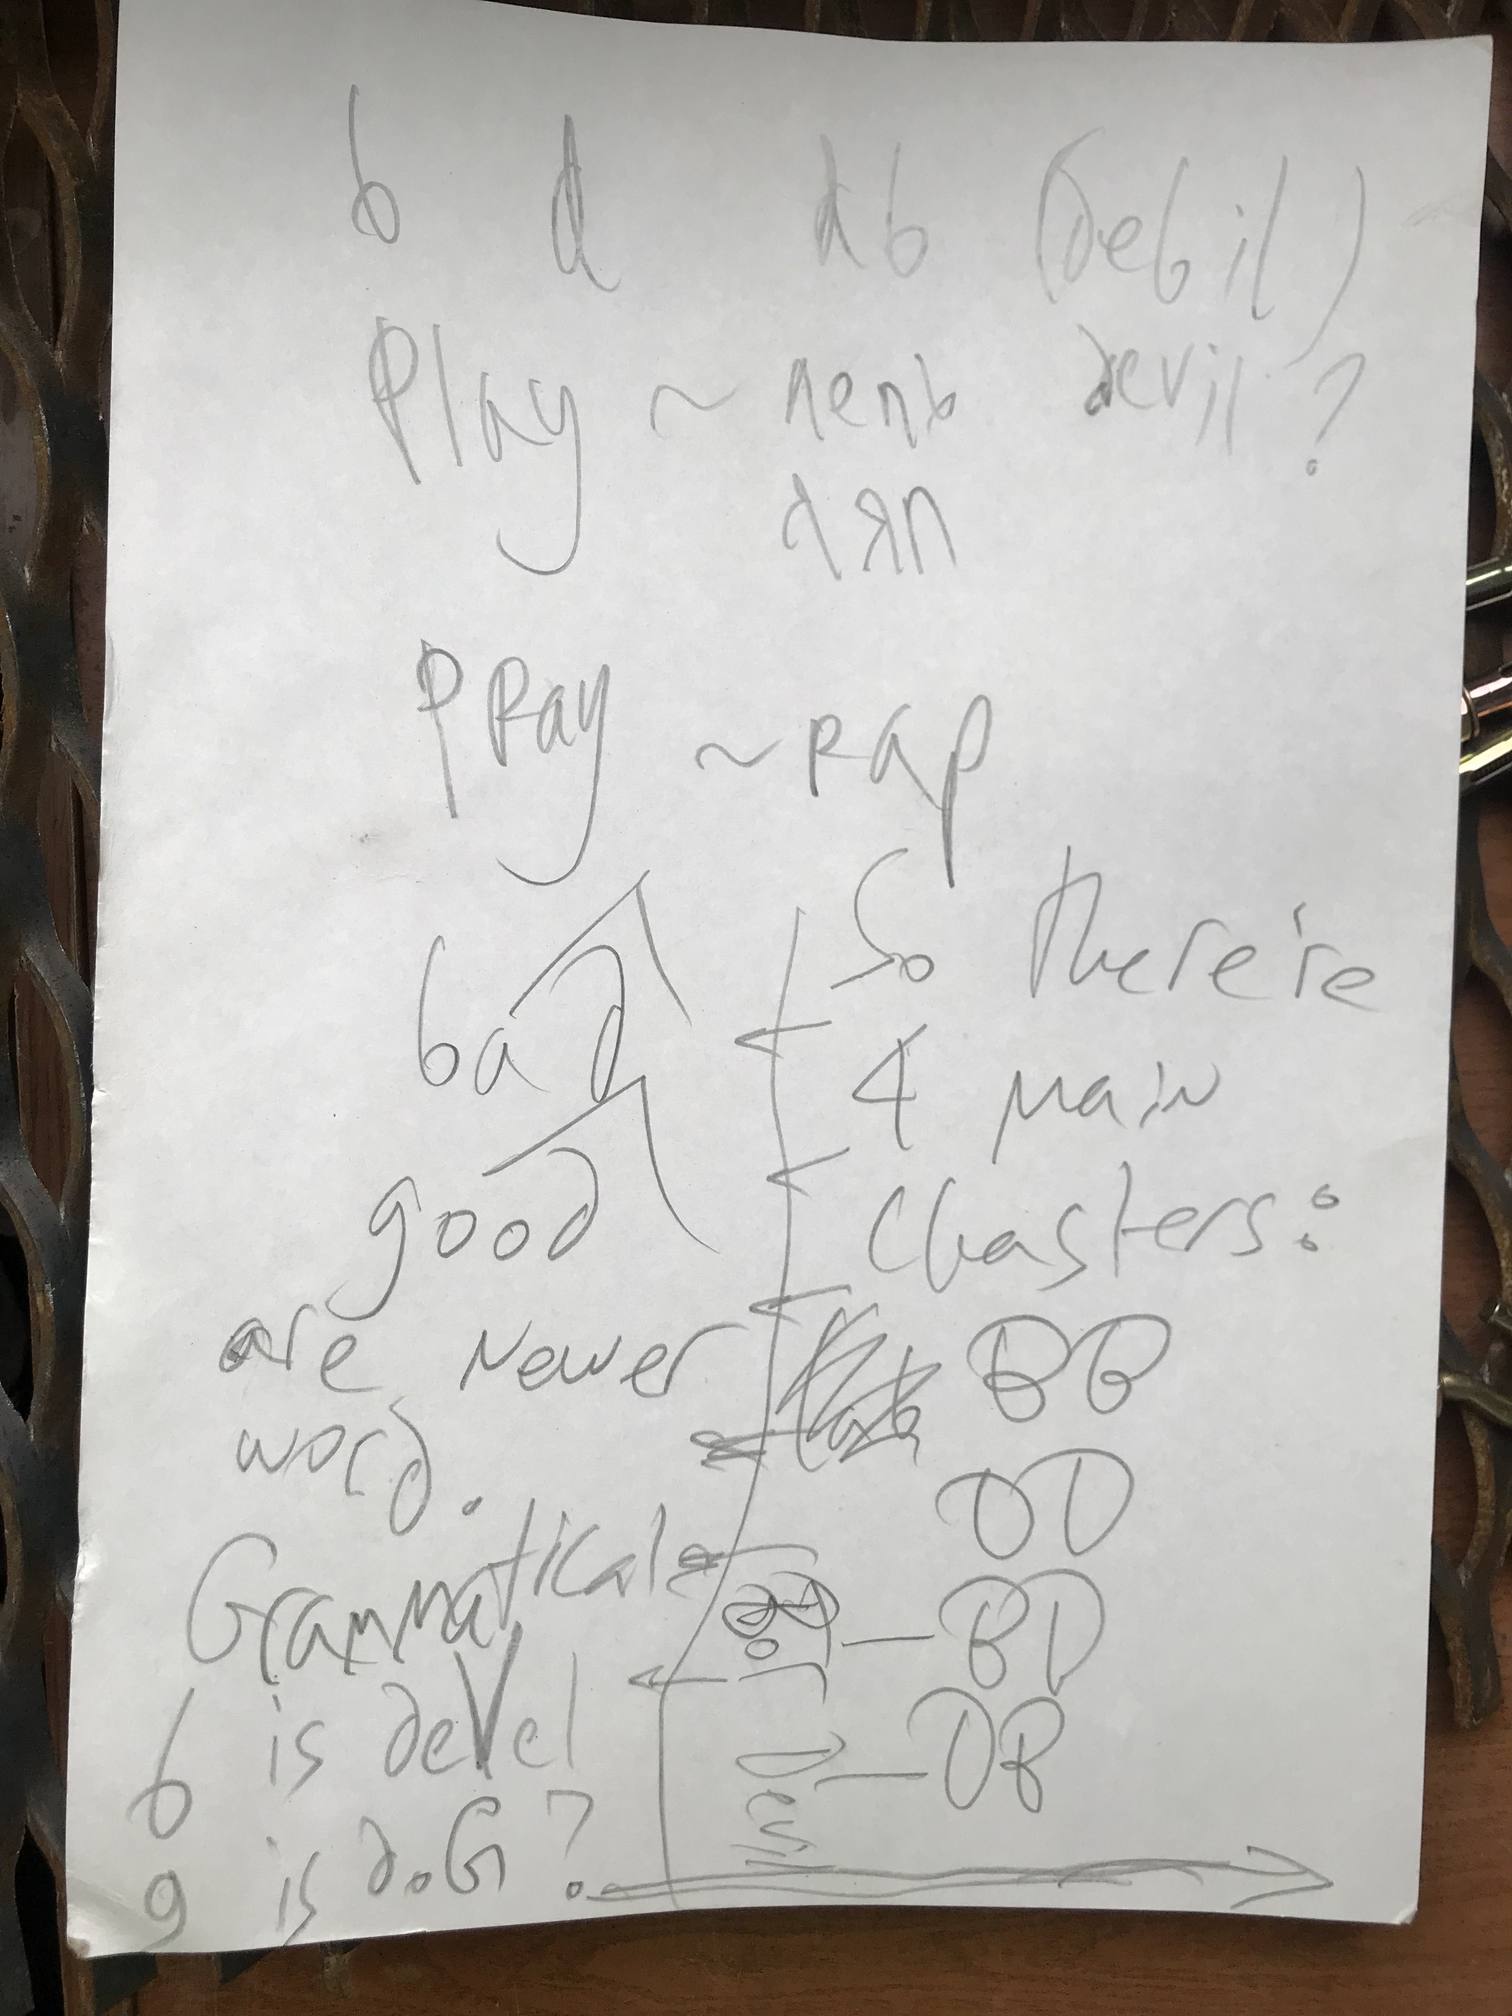 b d db (Debil)
Play ~ пень devil?
PRay ~ Rap
bad
good
are newer
word.
Grammatical
6 is deVel
9 is d.G?
So there're
4 main
clusters:
BB
DD
BD
DB
Devil